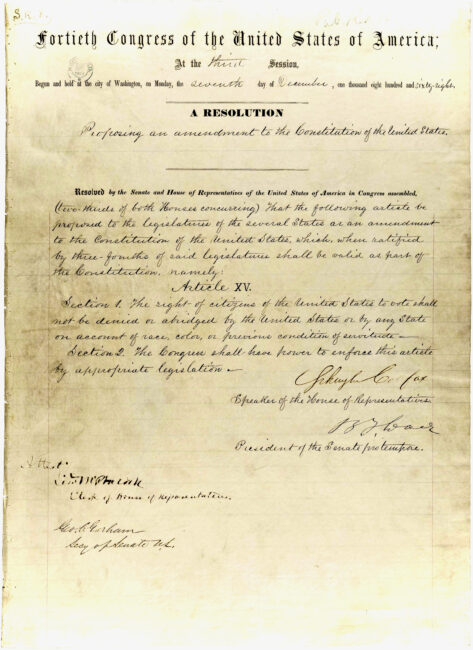 Fortieth Congress of the United States of America;
At the third Session,
Begun and held at the city of Washington, on Monday, the seventh day of December, one thousand eight hundred and sixty-eight.
A RESOLUTION
Proposing an amendment to the Constitution of the United States.
Resolved by the Senate and House of Representatives of the United States of America in Congress assembled,
(two-thirds of both Houses concurring) That the following article be
proposed to the legislatures of the several States as an amendment
to the Constitution of the United States, which, when ratified
by three-fourths of said legislatures shall be valid as part of
the Constitution, namely:
Article XV.
Section 1. The right of citizens of the United States to vote shall
not be denied or abridged by the United States or by any State
on account of race, color, or previous condition of servitude—
Section 2. The Congress shall have power to enforce this article
by appropriate legislation—
Schuyler Colfax
Speaker of the House of Representatives.
B F Wade
President of the Senate pro tempore.
Attest:
Edwd McPherson
Clerk of House of Representatives.
Geo. C. Gorham
Secy of Senate U.S.